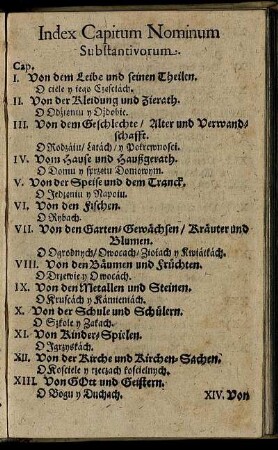 Index Capitum Nominum
Substantivorum.
Cap.
I. Von dem Leibe und seinen Theilen.
O ciele y iego Częściach.
II. Von der Kleidung und Zierath.
O Odzieniu y Ozdobie.
III. Von dem Geschlechte / Alter und Verwand-
schafft.
O Rodzaiu / Latach / y Pokrewności.
IV. Vom Hause und Haußgerath.
O Domu y sprzętu Domowym.
V. Von der Speise und dem Tranck.
O Jedzeniu y Napoiu.
VI. Von den Fischen.
O Rybach.
VII. Von den Garten-Gewächsen / Kräuter und
Blumen.
O Ogrodnych / Owocach / Ziołach y Kwiatkách.
VIII. Von den Bäumen und Früchten.
O Drzewie y Owocach.
IX. Von den Metallen und Steinen.
O Kruscách y Kámieniách.
X. Von der Schule und Schülern.
O Szkole y Zakach.
XI. Von Kinder-Spielen.
O Jgrzyskách.
XII. Von der Kirche und Kirchen-Sachen.
O Kościele y rzeczach kościelnych.
XIII. Von GOtt und Geistern.
O Bogu y Duchach.
XIV. Von